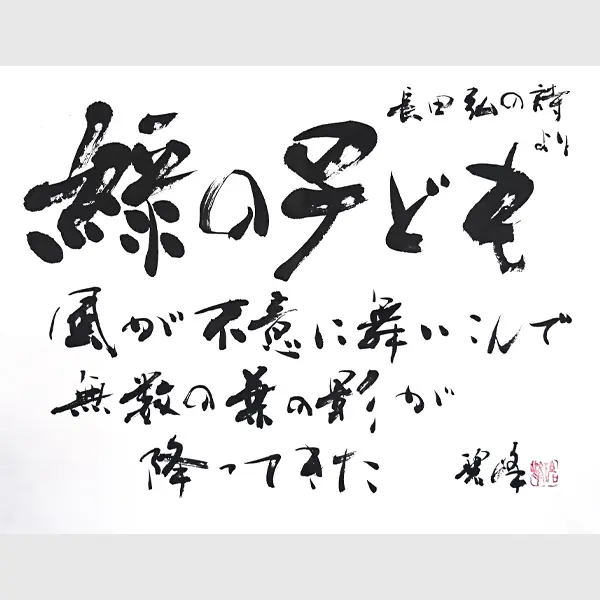 長田弘の詩
より
緑の子ども
風が不意に舞いこんで
無数の葉の影が
降ってきた
碧峰